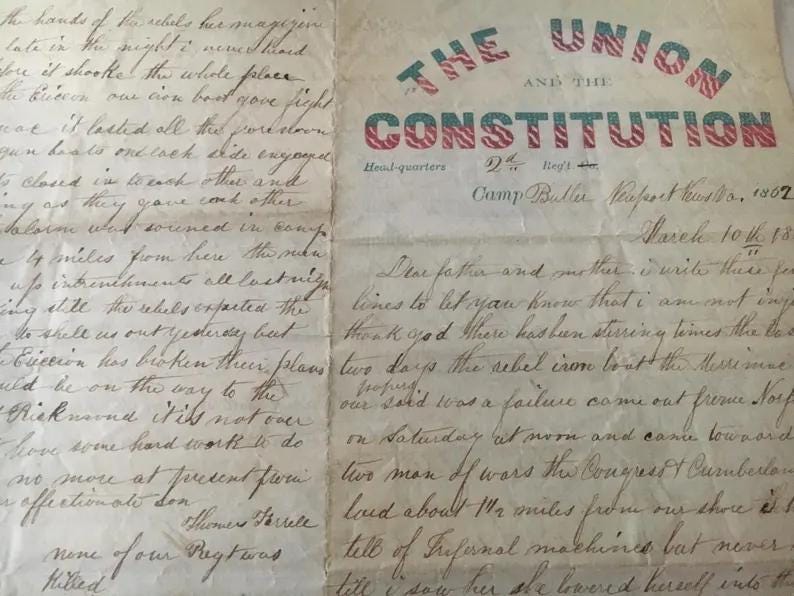 the hands of the rebels her magizine
late in the night i never heard
it shooke the whole place
the Ericson our iron boat gave fight
it lasted all the forenoon
gun boats on each side engaged
closed in to each other and
as they gave each other
alarm was souned in camp
4 miles from here the men
up intrenchments all last night
still the rebels expected the
to shell us out yesterday but
Ericcion has broken their plans
be on the way to the
Ricknsond it is not over
have some hard work to do
no more at present from
affectionate son
Thomas Farrell
none of our Regt was
Killed
THE UNION
AND THE
CONSTITUTION
Head-quarters 2d Reg't. Co.
Camp Butler Newport News Va. 1862
March 10th 18
Dear father and mother i write these few
lines to let you know that i am not inj
thank god there has been stirring times the las
two days the rebel iron boat the Merrimac
papers
our said was a failure came out frome Norf
on Saturday at noon and came toward
two man of wars the Congress & Cumberlan
laid about 1 1/2 miles from our shore i
tell of Infernal machines but never
till i saw her she lowered herself into the